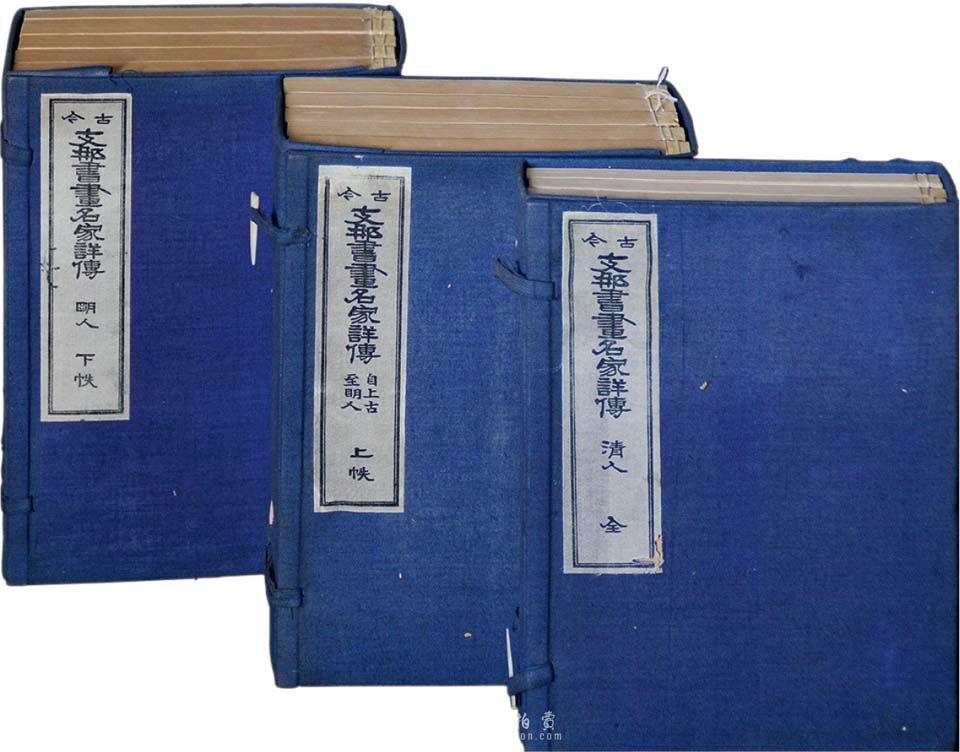 古今
支那書畫名家詳傳
明人
下帙
古今
支那書畫名家詳傳
自上古
至明人
上帙
古今
支那書畫名家詳傳
清人
全
拍賣
on.com